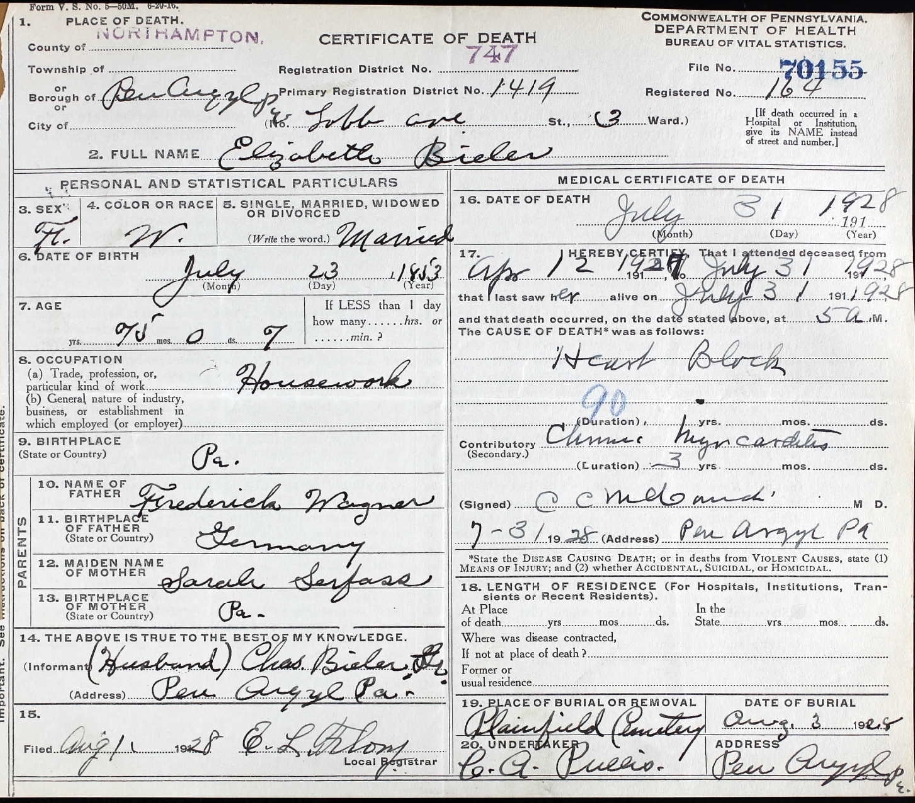 Form V. S. No. 5—50M. 6-20-16.
1. PLACE OF DEATH.
County of NORTHAMPTON.
Township of
or
Borough of Pen Argyl Pa
or
City of
CERTIFICATE OF DEATH
Registration District No. 747
Primary Registration District No. 1419
(No. Lobb ave St., 3 Ward.)
COMMONWEALTH OF PENNSYLVANIA.
DEPARTMENT OF HEALTH
BUREAU OF VITAL STATISTICS.
File No. 70155
Registered No. 164
[If death occurred in a
Hospital or Institution,
give its NAME instead
of street and number.]
2. FULL NAME Elizabeth Bieler
PERSONAL AND STATISTICAL PARTICULARS
3. SEX F.
4. COLOR OR RACE W.
5. SINGLE, MARRIED, WIDOWED
OR DIVORCED
(Write the word.) Married
6. DATE OF BIRTH
July 23, 1853
(Month) (Day) (Year)
7. AGE
75 yrs. 0 mos. 7 ds.
If LESS than 1 day
how many......hrs. or
......min.?
8. OCCUPATION
(a) Trade, profession, or,
particular kind of work Housework
(b) General nature of industry,
business, or establishment in
which employed (or employer)
9. BIRTHPLACE
(State or Country)
Pa.
PARENTS
10. NAME OF
FATHER Frederick Wagner
11. BIRTHPLACE
OF FATHER
(State or Country) Germany
12. MAIDEN NAME
OF MOTHER Sarah Serfass
13. BIRTHPLACE
OF MOTHER
(State or Country) Pa.
14. THE ABOVE IS TRUE TO THE BEST OF MY KNOWLEDGE.
(Informant (Husband) Chas. Bieler Sr.
(Address) Pen Argyl Pa.
15.
Filed Aug 1. 1928
Local Registrar
MEDICAL CERTIFICATE OF DEATH
16. DATE OF DEATH
July 31 1928
191
(Month) (Day) (Year)
17. I HEREBY CERTIFY, That I attended deceased from
Apr 12 1927, to July 31 1928
that I last saw her alive on July 31 1928
and that death occurred, on the date stated above, at 5 a. M.
The CAUSE OF DEATH* was as follows:
Heart Block
90
(Duration), yrs. mos. ds.
Contributory Chronic Myocarditis
(Secondary.)
(Duration) 3 yrs mos. ds.
(Signed) M D.
7-31 1928 (Address) Pen Argyl Pa
*State the DISEASE CAUSING DEATH; or in deaths from VIOLENT CAUSES, state (1)
MEANS OF INJURY; and (2) whether ACCIDENTAL, SUICIDAL, OR HOMICIDAL.
18. LENGTH OF RESIDENCE (For Hospitals, Institutions, Tran-
sients or Recent Residents).
At Place In the
of death yrs mos ds. State yrs mos ds.
Where was disease contracted,
If not at place of death?
Former or
usual residence
19. PLACE OF BURIAL OR REMOVAL
Plainfield Cemetery
DATE OF BURIAL
Aug. 3 1928
20. UNDERTAKER
C. A. Pullis.
ADDRESS
Pen Argyl Pa.
Important. See instructions on back of certificate.